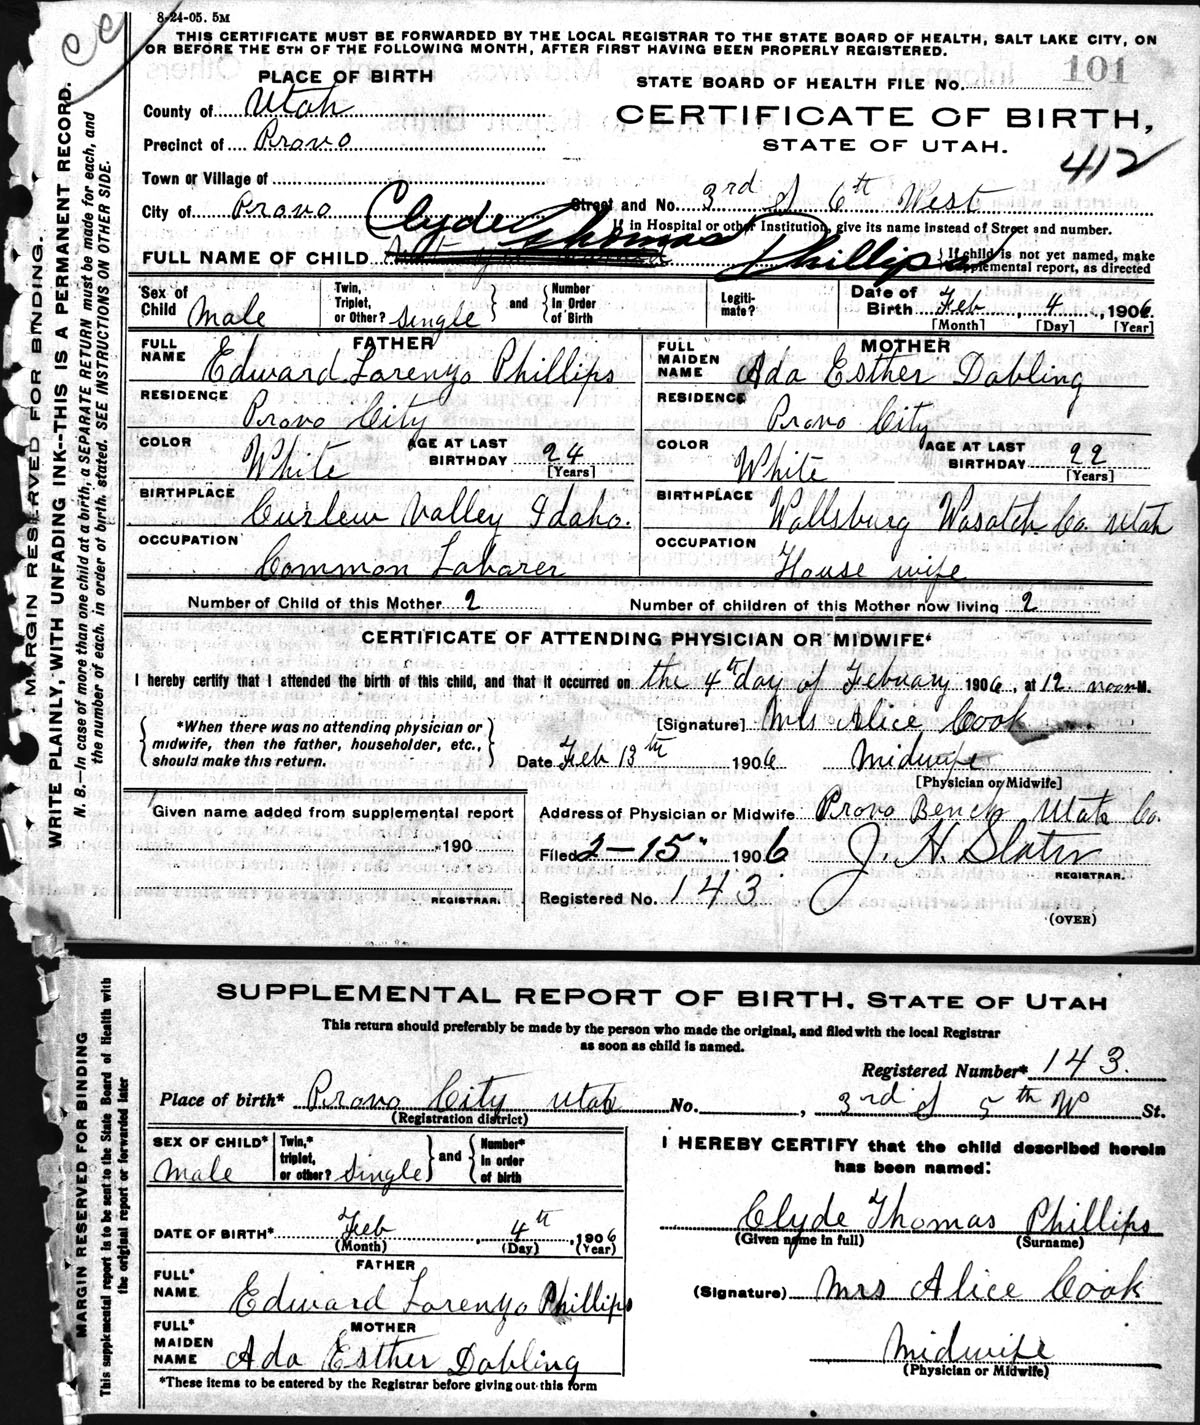 8-24-05. 5M
THIS CERTIFICATE MUST BE FORWARDED BY THE LOCAL REGISTRAR TO THE STATE BOARD OF HEALTH, SALT LAKE CITY, ON
OR BEFORE THE 5TH OF THE FOLLOWING MONTH, AFTER FIRST HAVING BEEN PROPERLY REGISTERED.
MARGIN RESERVED FOR BINDING.
WRITE PLAINLY, WITH UNFADING INK--THIS IS A PERMANENT RECORD.
N. B.—In case of more than one child at a birth, a SEPARATE RETURN must be made for each, and
the number of each, in order of birth, stated. SEE INSTRUCTIONS ON OTHER SIDE.
PLACE OF BIRTH
STATE BOARD OF HEALTH FILE No. 101
County of Utah
CERTIFICATE OF BIRTH,
Precinct of Provo
STATE OF UTAH.
412
Town or Village of
City of Provo Street and No. 3rd & 6th West
If in Hospital or other Institution, give its name instead of Street and number.
FULL NAME OF CHILD Clyde Thomas Phillips
If child is not yet named, make
supplemental report, as directed
Sex of Child Male
Twin, Triplet, or Other? Single and Number In Order of Birth
Legitimate?
Date of Birth Feb 4, 1906
[Month] [Day] [Year]
FATHER
MOTHER
FULL NAME Edward Lorenzo Phillips
FULL MAIDEN NAME Ada Esther Dabling
RESIDENCE Provo City
RESIDENCE Provo City
COLOR White AGE AT LAST BIRTHDAY 24 [Years]
COLOR White AGE AT LAST BIRTHDAY 22 [Years]
BIRTHPLACE Curlew Valley Idaho.
BIRTHPLACE Wallsburg Wasatch Co. Utah
OCCUPATION Common Laborer
OCCUPATION House wife
Number of Child of this Mother 2 Number of children of this Mother now living 2
CERTIFICATE OF ATTENDING PHYSICIAN OR MIDWIFE*
I hereby certify that I attended the birth of this child, and that it occurred on the 4th day of February 1906, at 12. noon M.
*When there was no attending physician or
midwife, then the father, householder, etc.,
should make this return.
[Signature] Mrs Alice Cook
Date Feb 13th 1906 Midwife
[Physician or Midwife]
Given name added from supplemental report
190
REGISTRAR.
Address of Physician or Midwife Provo Bench Utah Co.
Filed 2-15 1906 J. H. Slater
REGISTRAR.
Registered No. 143
(OVER)
MARGIN RESERVED FOR BINDING
This supplemental report is to be sent to the State Board of Health with
the original report or forwarded later
SUPPLEMENTAL REPORT OF BIRTH, STATE OF UTAH
This return should preferably be made by the person who made the original, and filed with the local Registrar
as soon as child is named.
Registered Number* 143.
Place of birth* Provo City Utah No. , 3rd & 5th W St.
(Registration district)
SEX OF CHILD* Male
Twin,* triplet, or other? Single and Number* in order of birth
DATE OF BIRTH* Feb 4th, 1906
(Month) (Day) (Year)
FATHER
FULL* NAME Edward Lorenzo Phillips
MOTHER
FULL* MAIDEN NAME Ada Esther Dabling
*These items to be entered by the Registrar before giving out this form
I HEREBY CERTIFY that the child described herein
has been named:
Clyde Thomas Phillips
(Given name in full) (Surname)
(Signature) Mrs Alice Cook
Midwife
(Physician or Midwife)